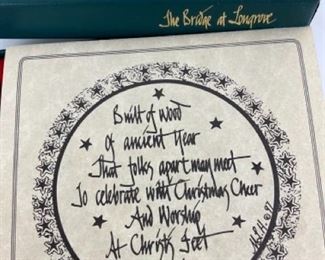 The Bridge at Longrove
Built of Wood
Of ancient Year
That folks apart may meet
To celebrate with Christmas Cheer
And Worship
At Christs Feet